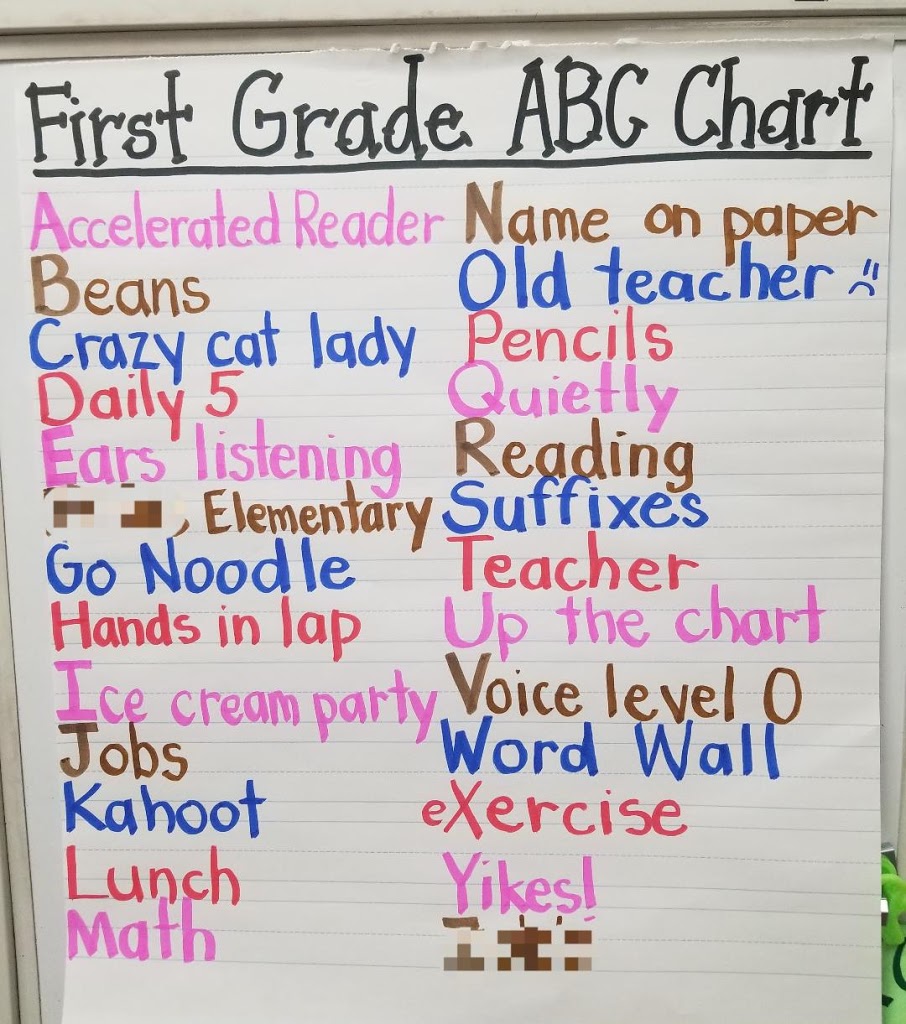 First Grade ABC Chart
Accelerated Reader
Beans
Crazy cat lady
Daily 5
Ears listening
Elementary
Go Noodle
Hands in lap
Ice cream party
Jobs
Kahoot
Lunch
Math
Name on paper
Old teacher
Pencils
Quietly
Reading
Suffixes
Teacher
Up the chart
Voice level 0
Word Wall
eXercise
Yikes!